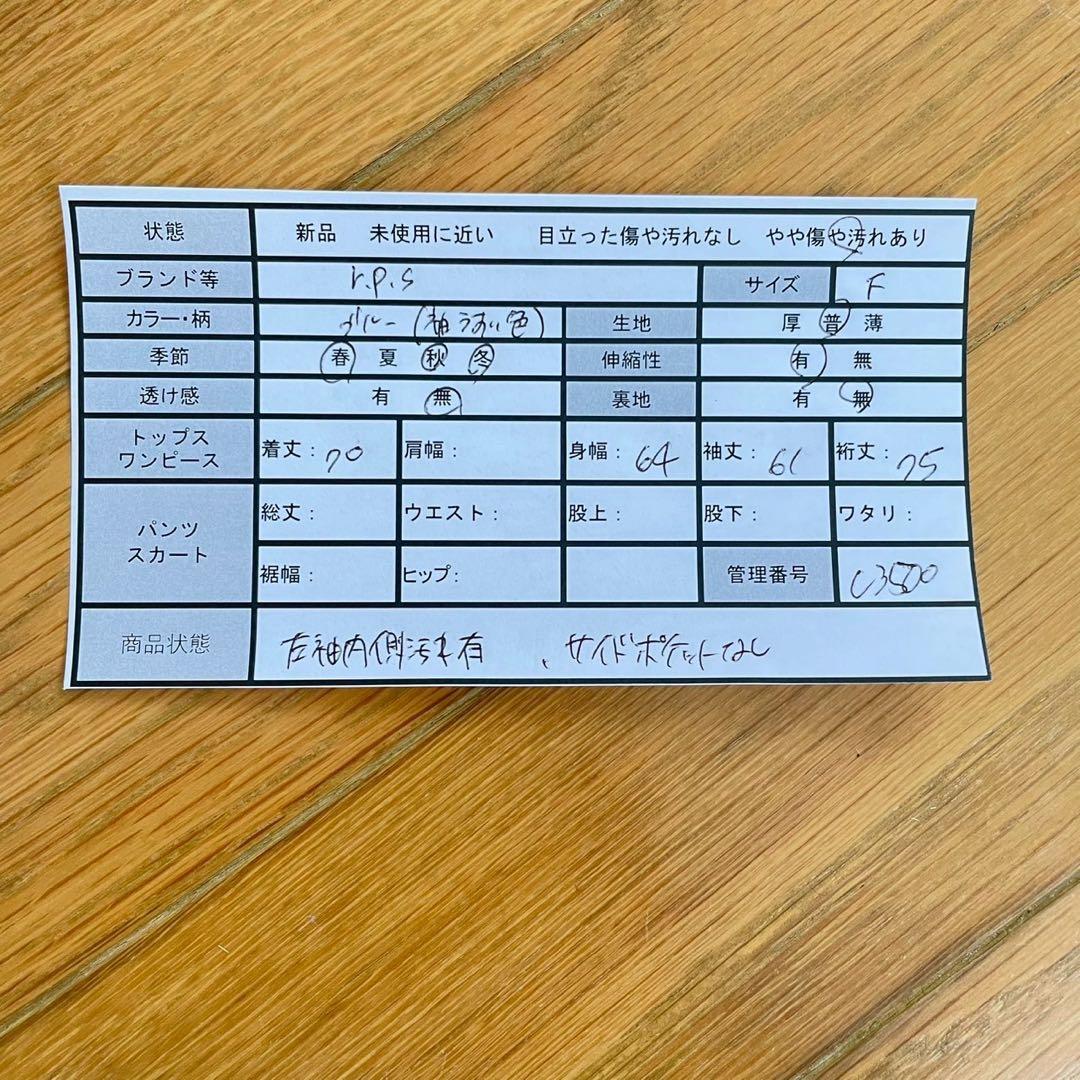 状態 新品 未使用に近い 目立った傷や汚れなし やや傷や汚れあり
ブランド等 r.p.s サイズ F
カラー・柄 ブルー(袖うすい色) 生地 厚 普 薄
季節 春 夏 秋 冬 伸縮性 有 無
透け感 有 無 裏地 有 無
トップス
ワンピース
着丈: 70 肩幅: 身幅: 64 袖丈: 61 裄丈: 75
パンツ
スカート
総丈: ウエスト: 股上: 股下: ワタリ:
裾幅: ヒップ: 管理番号 C3500
商品状態 左袖内側汚れ有、サイドポケットなし